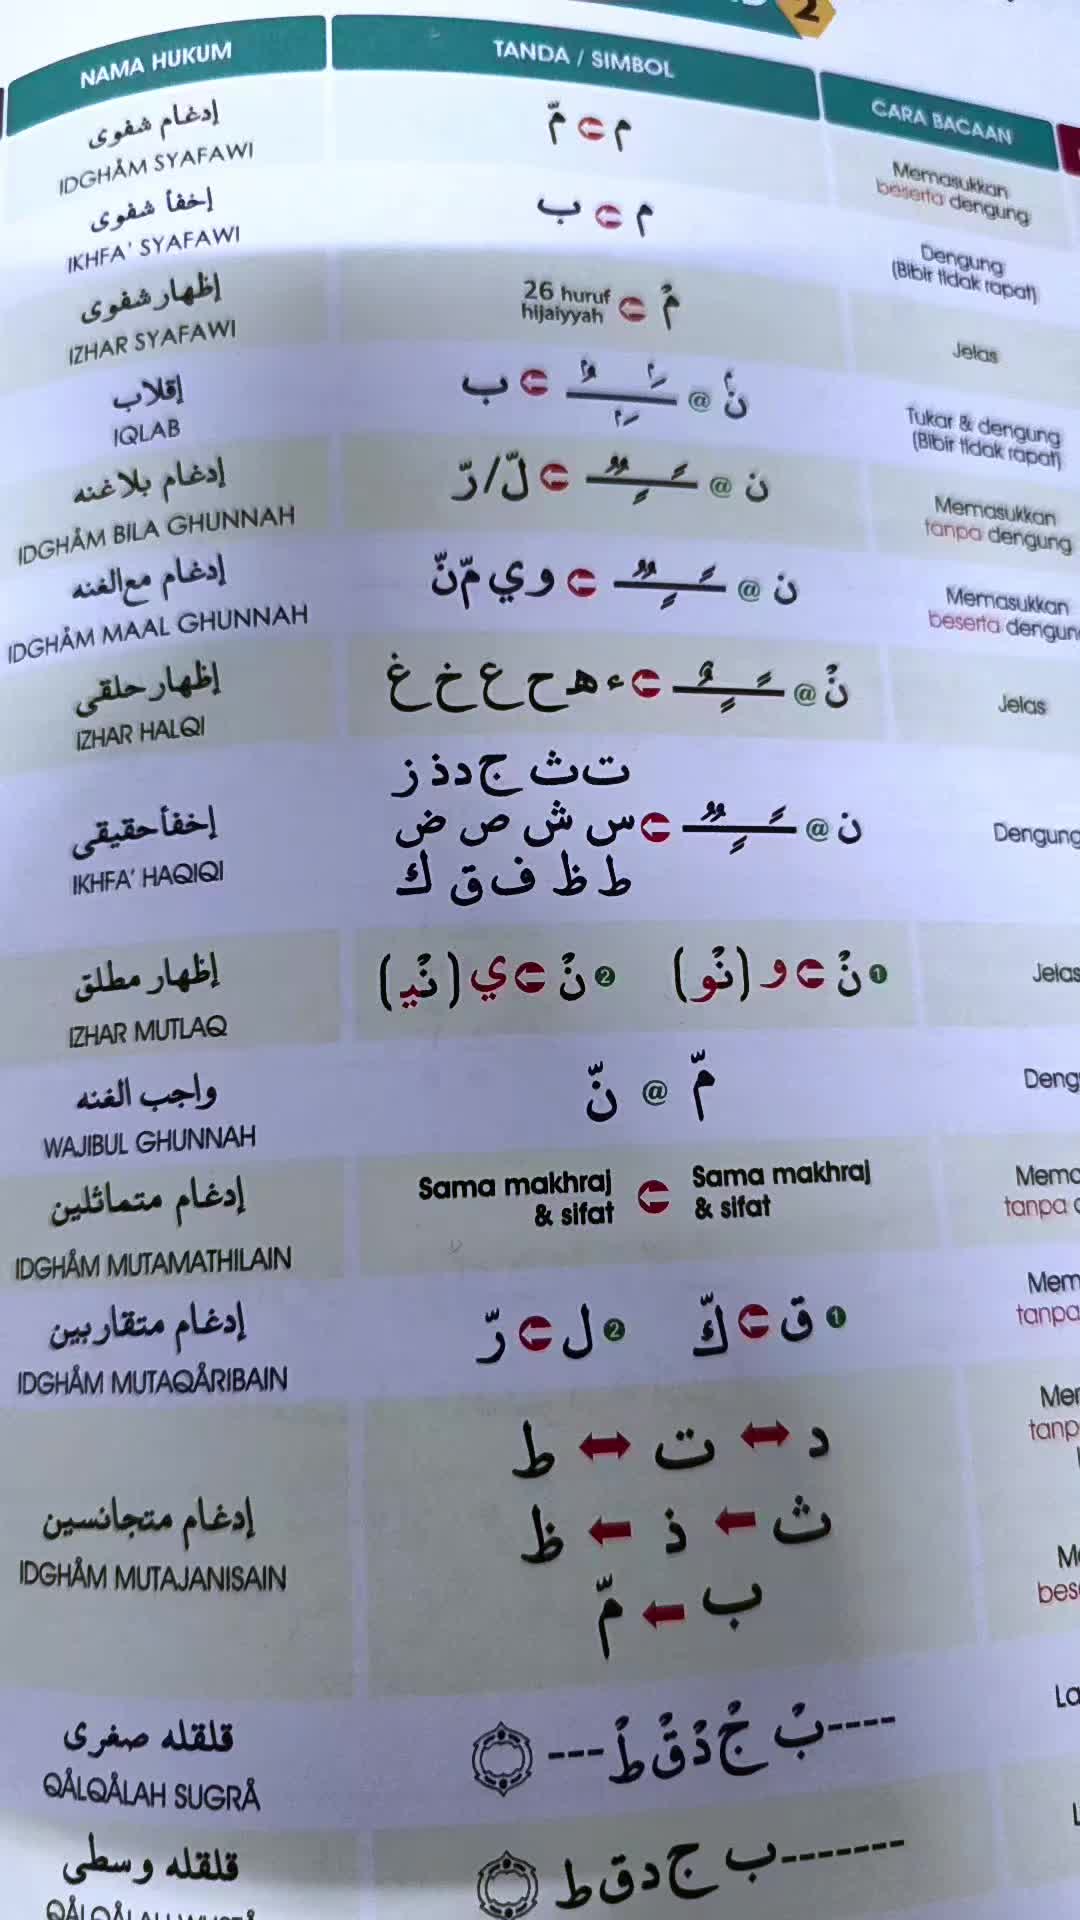 2
NAMA HUKUM
TANDA / SIMBOL
CARA BACAAN
إدغام شفوي
IDGHÅM SYAFAWI
م مّ
Memasukkan
beserta dengung
إخفأ شفوي
IKHFA' SYAFAWI
م ب
Dengung
(Bibir tidak rapat)
إظهار شفوي
IZHAR SYAFAWI
مْ 26 huruf
hijaiyyah
Jelas
إقلاب
IQLAB
ن @ ب
Tukar & dengung
(Bibir tidak rapat)
إدغام بلاغنه
IDGHÅM BILA GHUNNAH
ن @ لّ/رّ
Memasukkan
tanpa dengung
إدغام مع الغنه
IDGHÅM MAAL GHUNNAH
ن @ و ي مّ نّ
Memasukkan
beserta
إظهار حلقي
IZHAR HALQI
نْ @ ء ه ح ع خ غ
Jelas
إخفأ حقيقي
IKHFA' HAQIQI
ت ث ج د ذ ز
ن @ س ش ص ض
ط ظ ف ق ك
Dengung
إظهار مطلق
IZHAR MUTLAQ
1 نْ و (نْو) 2 نْ ي (نْي)
Jelas
واجب الغنه
WAJIBUL GHUNNAH
مّ @ نّ
Deng
إدغام متماثلين
IDGHÅM MUTAMATHILAIN
Sama makhraj
& sifat
Sama makhraj
& sifat
Mema
tanpa
إدغام متقاربين
IDGHÅM MUTAQÅRIBAIN
1 ق كّ 2 ل رّ
Mem
tanpa
إدغام متجانسين
IDGHÅM MUTAJANISAIN
د ت ط
ث ذ ظ
ب مّ
Mer
tanp
M
bes
قلقله صغرى
QÅLQÅLAH SUGRÅ
----بْ جْ دْ قْ طْ---
La
قلقله وسطى
-------ب ج د ق ط